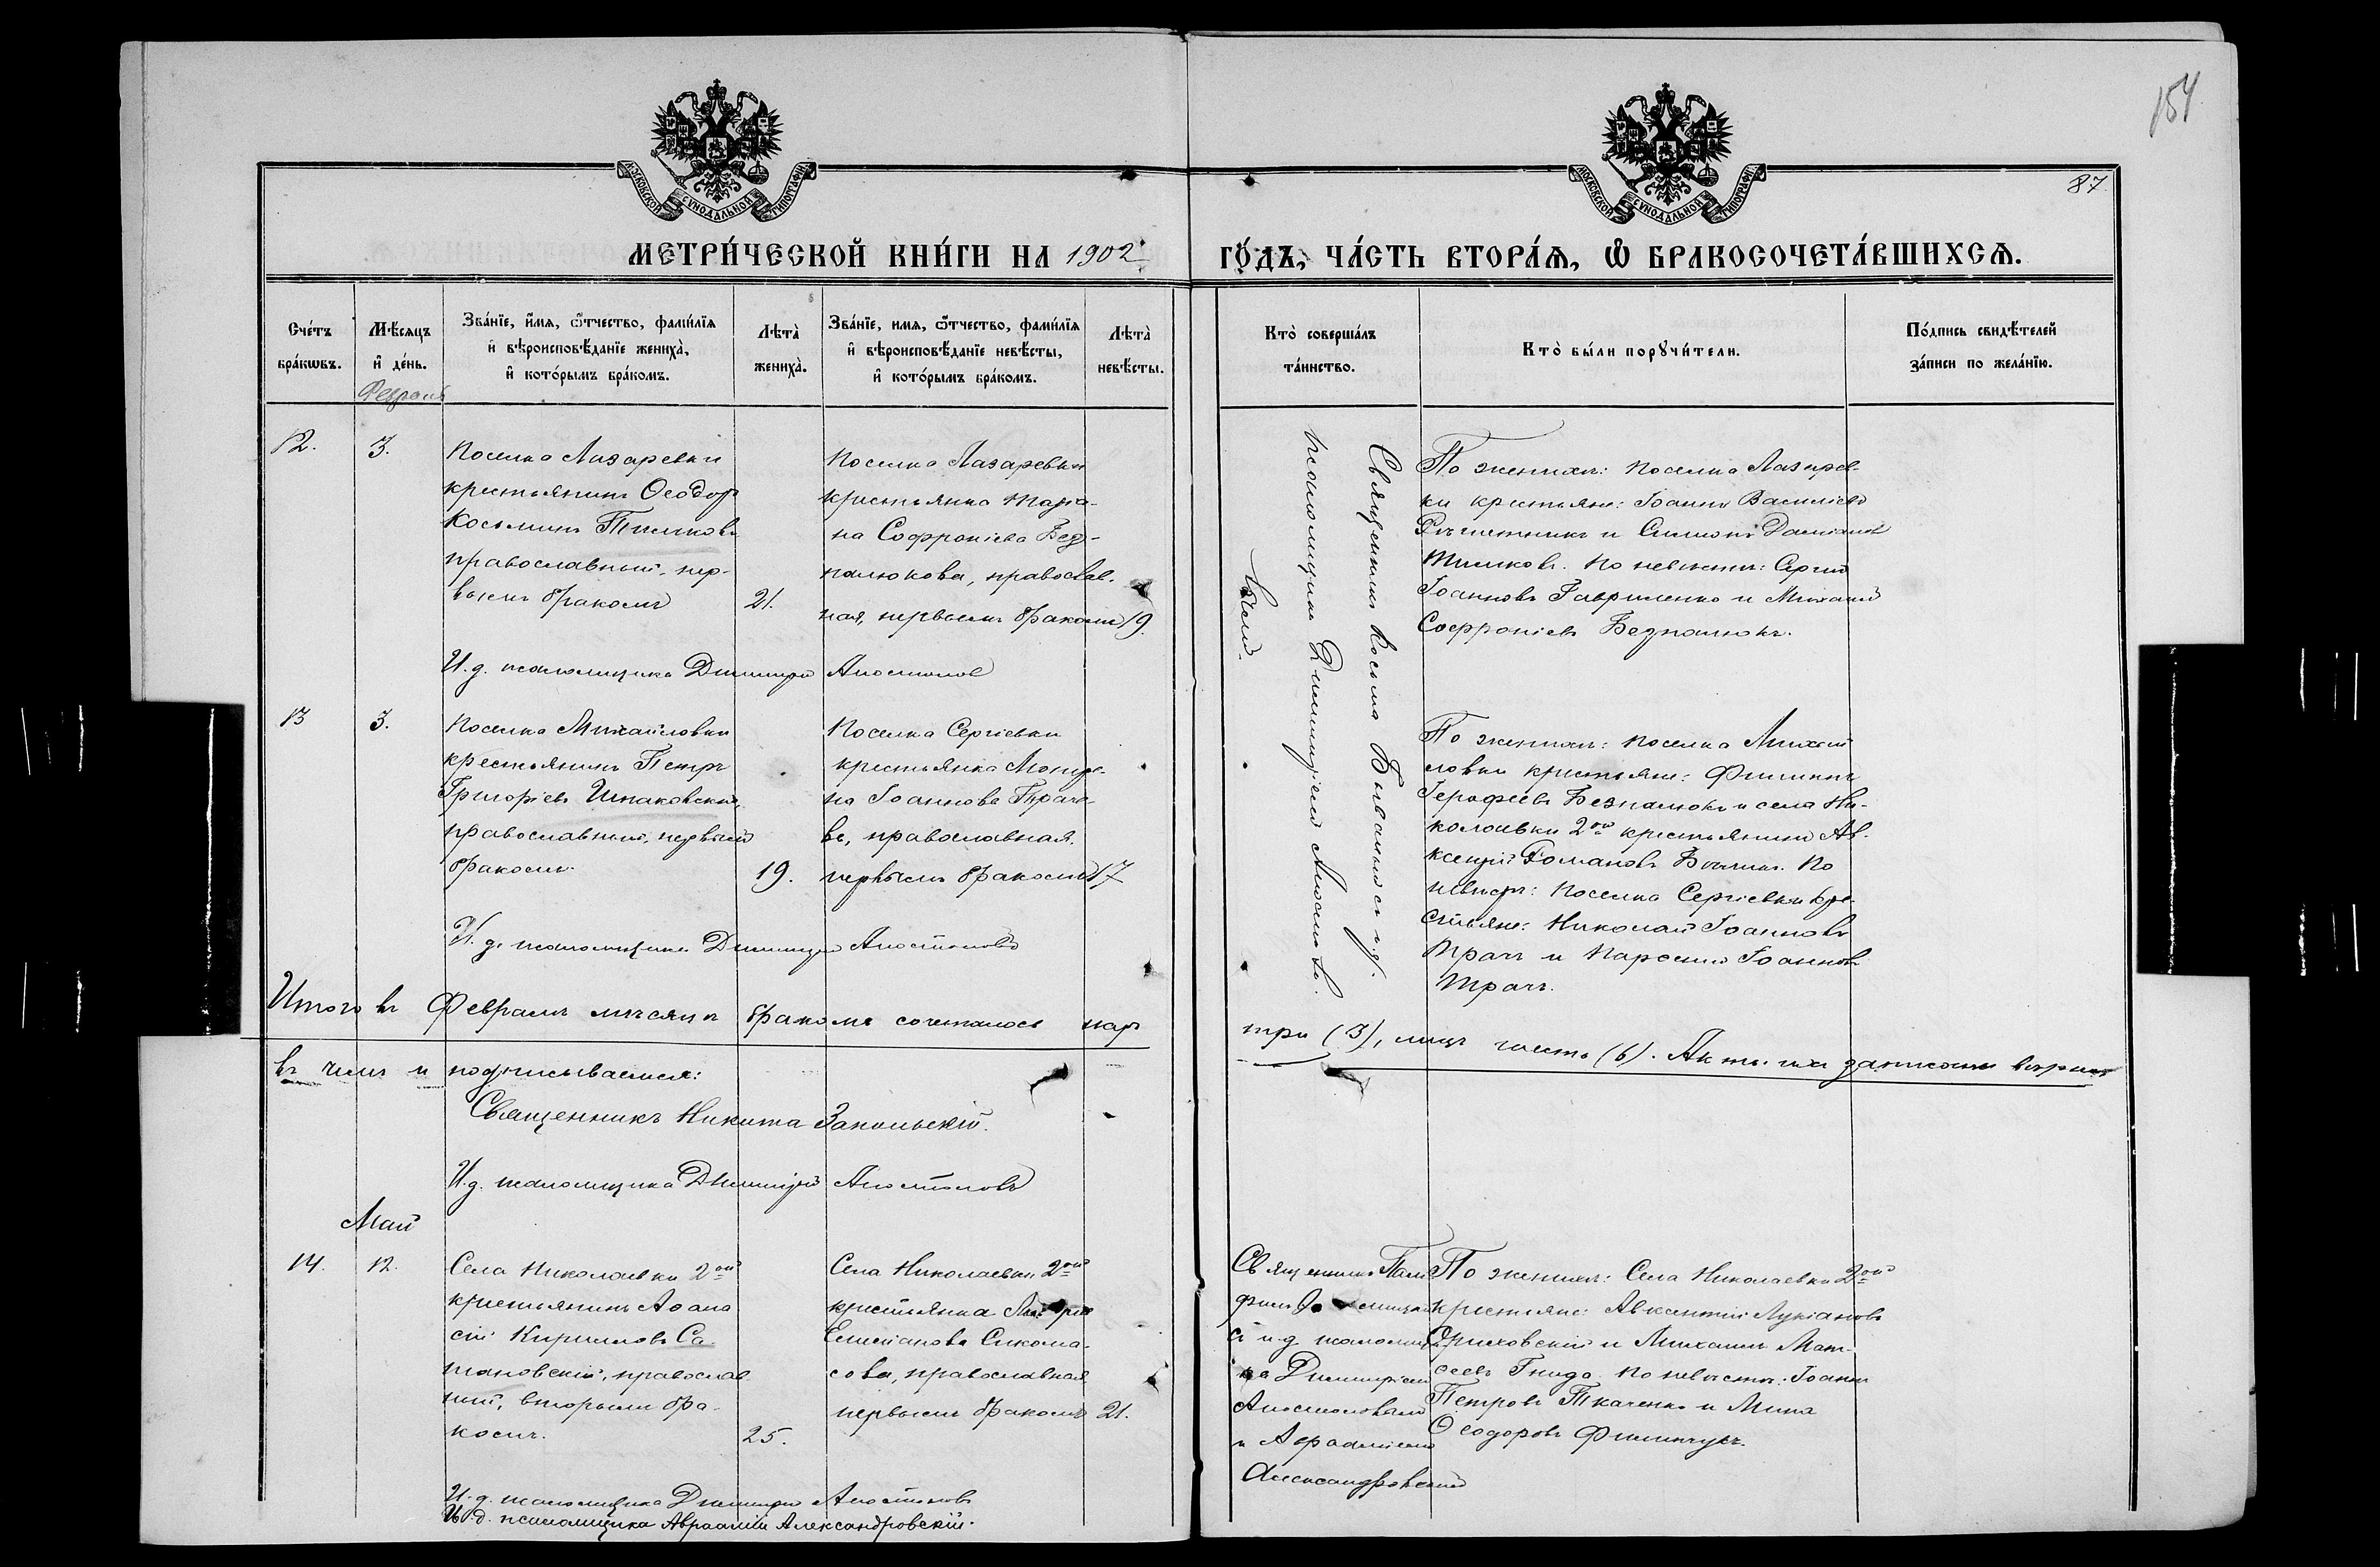 154
87.
МОСКОВСКОЙ СУНОДАЛЬНОЙ ТИПОГРАФІИ
МОСКОВСКОЙ СУНОДАЛЬНОЙ ТИПОГРАФІИ
МЕТРИ́ЧЕСКОЙ КНИ́ГИ НА 1902 ГО́ДЪ, ЧА́СТЬ ВТОРА́Ѧ, Ѽ БРАКОСОЧЕТА́ВШИХСѦ.
Сче́тъ бра́кωвъ.
Мѣ́сяцъ и҆ де́нь.
Зва́нїе, и҆́мя, ѻ҆́тчество, фами́лїя и҆ вѣроисповѣ́данїе жениха̀, и҆ кото́рымъ бра́комъ.
Лѣта̀ жениха̀.
Зва́нїе, имя, ѻ҆́тчество, фами́лїя и҆ вѣроисповѣ́данїе невѣ́сты, и҆ кото́рымъ бра́комъ.
Лѣта̀ невѣ́сты.
Кто̀ соверша́лъ та́инство.
Кто̀ бы́ли порꙋчи́тели.
По́дпись свидѣ́телей за́писи по жела́нїю.
Февраль
12.
3.
Поселка Лазаревки
крестьянинъ Ѳеодоръ
Косьминъ Тимковъ
православный, пер-
вымъ бракомъ
21.
Поселка Лазаревки
крестьянка
на Софроніева Без-
палюкова, православ-
ная, первымъ бракомъ
19.
Священникъ Косьма с и. д.
псаломщика Димитріемъ Апостоло-
вымъ.
По женихѣ: поселка Лазарев-
ки крестьяне: Іоаннъ Василіевъ
и Симеонъ Даміановъ
Тимковъ. По невѣстѣ: Сергій
Іоанновъ Гавриленко и Михаилъ
Софроніевъ Безпалюкъ.
И. д. псаломщика Димитрій Апостоловъ
13
3.
Поселка Михайловки
крестьянинъ Петръ
Григоріевъ Шпаковскій,
православный, первымъ
бракомъ.
19.
Поселка Сергіевки
крестьянка
на Іоаннова Трача-
ва, православная.
первымъ бракомъ
17
По женихѣ: поселка Михай-
ловки крестьяне: Филиппъ
Іерофеевъ Безпалюкъ и села Ни-
колаевки 2ой крестьянинъ Ав-
ксентій Романовъ По
невѣстѣ: поселка Сергіевки кре-
стьяне: Николай Іоанновъ
Трачъ и Іоанновъ
Трачъ.
И. д. псаломщика Димитрій Апостоловъ
Итого въ Февралѣ мѣсяцѣ бракомъ сочеталось паръ три (3), лицъ шесть (6). Акты сіи записаны вѣрно
въ чемъ и подписываемся:
Священникъ Никита Закольскій.
И. д. псаломщика Димитрій Апостоловъ
Май
14.
12.
Села Николаевки 2ой
крестьянинъ Аѳана-
сій Кирилловъ Са-
тановскій, православ-
ный, вторымъ бра-
комъ.
25.
Села Николаевки 2ой
крестьянка
Емеліанова Сикома-
сова, православная
первымъ бракомъ
21.
Священникъ Пам-
филъ
съ и. д. псаломщи-
ка Димитріемъ
Апостоловымъ
и Авраамiемъ
Александровскимъ
По женихѣ: Села Николаевки 2ой
крестьяне: Авксентій Лукіановъ
Ориховскій и Михаилъ Мат-
ѳеевъ Гнида. По невѣстѣ: Іоаннъ
Петровъ Ткаченко и Мина
Ѳеодоровъ Филипчукъ.
И. д. псаломщика Димитрій Апостоловъ
И. д. псаломщика Авраамій Александровскій.